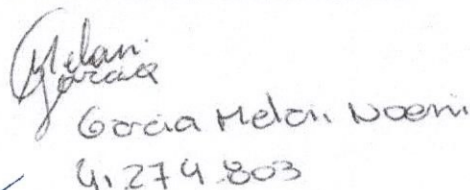 Melani
Garcia
Garcia Melani Noemi
41.274.803